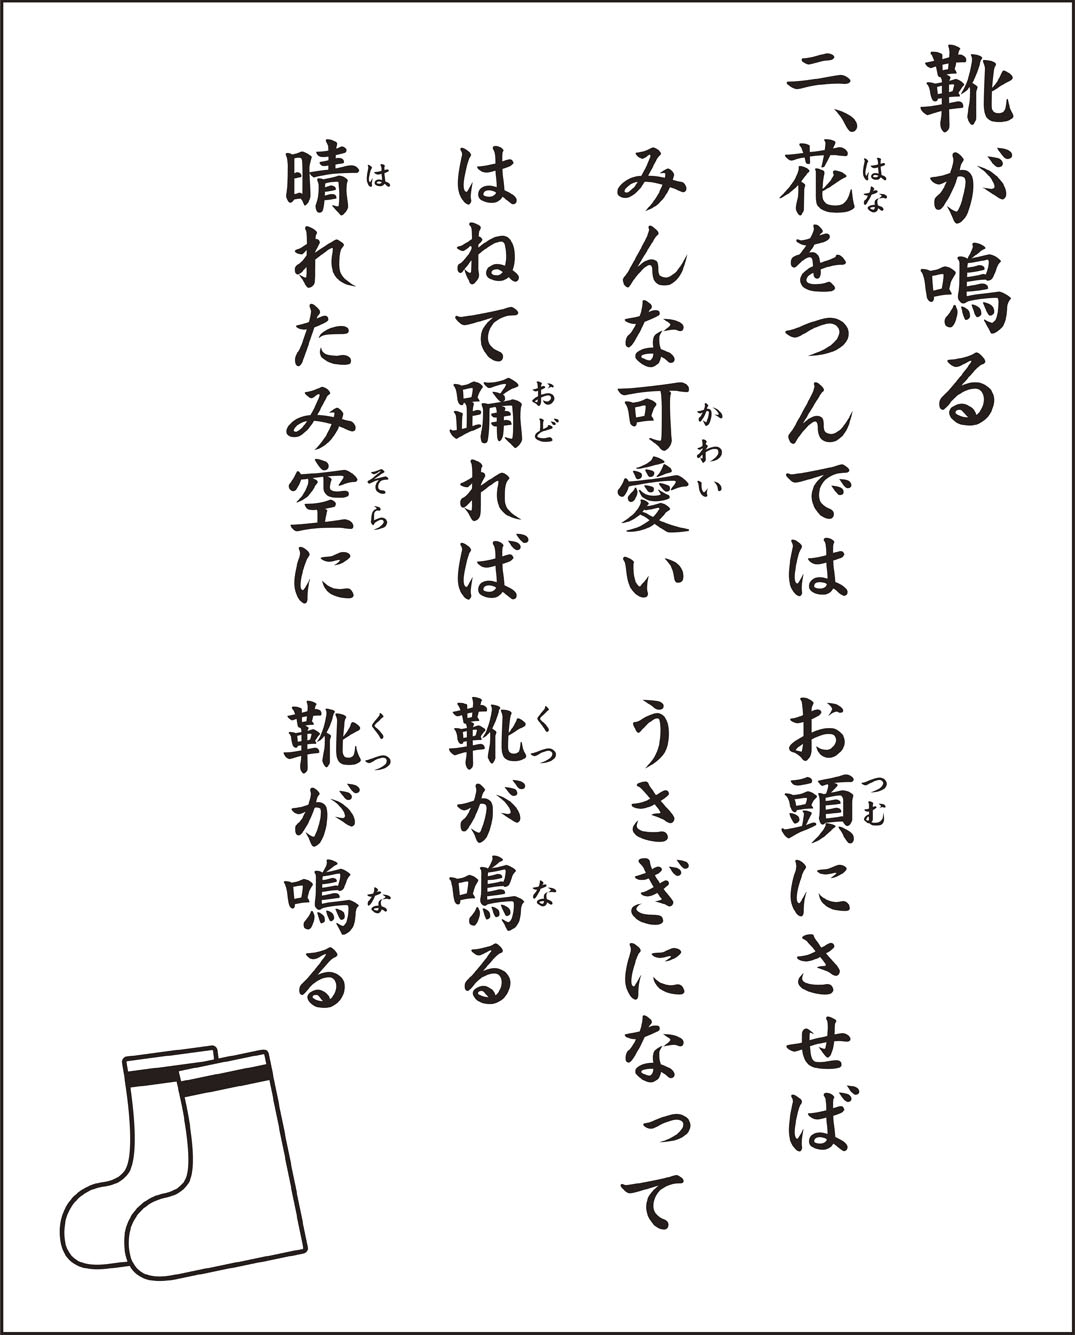 靴が鳴る
二、花をつんでは　お頭にさせば
みんな可愛い　うさぎになって
はねて踊れば　靴が鳴る
晴れたみ空に　靴が鳴る
はな
つむ
かわい
おど
くつ
な
は
そら
くつ
な